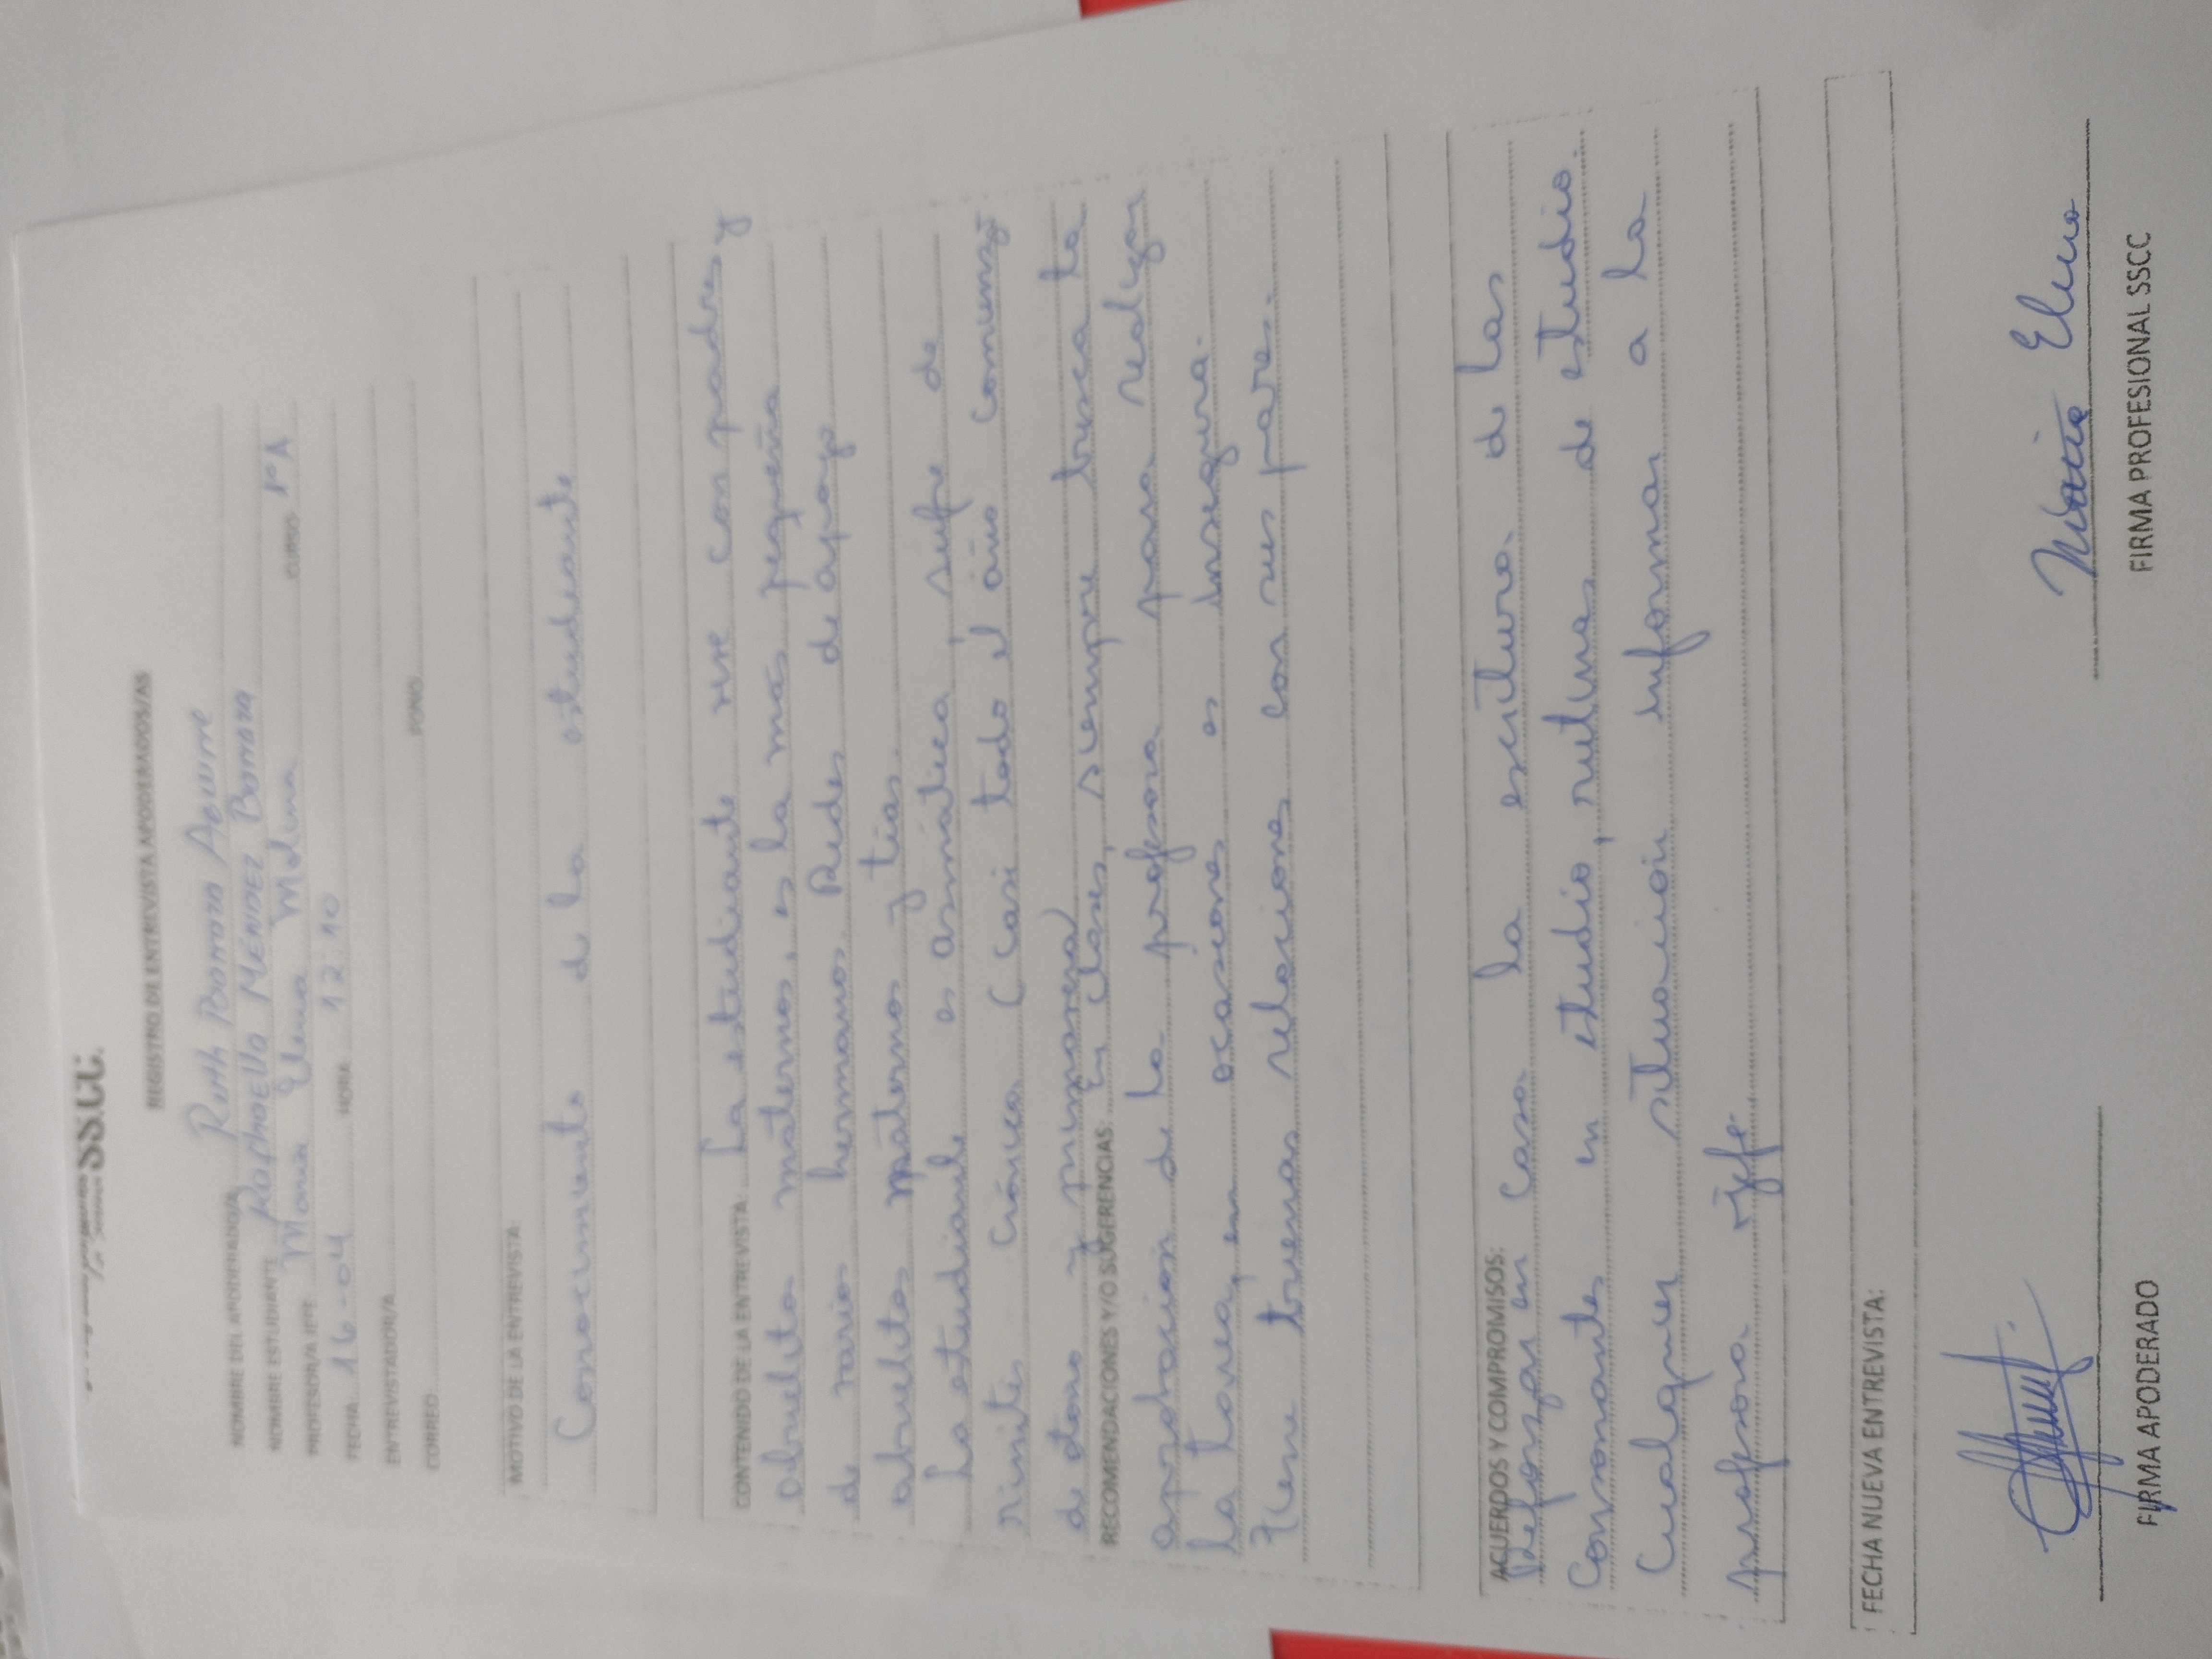 SS.CC.
REGISTRO DE ENTREVISTA APODERADOS/AS
NOMBRE DEL APODERADO/A Ruth Bonta Aguirre
NOMBRE ESTUDIANTE Raphaella Méndez Bonta
PROFESOR/A JEFE Maria Elena Molina CURSO 1°A
FECHA 16-04 HORA 12:10
ENTREVISTADOR/A
CORREO FONO
MOTIVO DE LA ENTREVISTA
Conocimiento de la estudiante
CONTENIDO DE LA ENTREVISTA La estudiante vive con padres y
abuelita maternos, es la más pequeña
de varios hermanos. Redes de apoyo
abuelitos materno y tías.
La estudiante es asmática, sufre de
rinitis crónica (casi todo el año comienzo
de otoño y primavera)
RECOMENDACIONES Y/O SUGERENCIAS: En clases, siempre busca la
aprobación de la profesora para realizar
la tarea, en ocasiones es insegura.
Tiene buenas relaciones con sus pares.
ACUERDOS Y COMPROMISOS:
Reforzar en casa la escritura de las
consonantes en estudio, rutinas de estudio.
Cualquier situación informar a la
profesora jefe.
FECHA NUEVA ENTREVISTA:
FIRMA APODERADO
Maria Elena
FIRMA PROFESIONAL SSCC